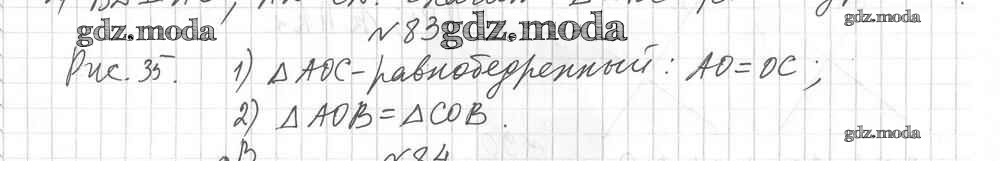 №83
gdz.moda gdz.moda gdz.moda
Рис. 35. 1) △AOC-равнобедренный: AO=OC;
2) △AOB=△COB.
gdz.moda
B №84